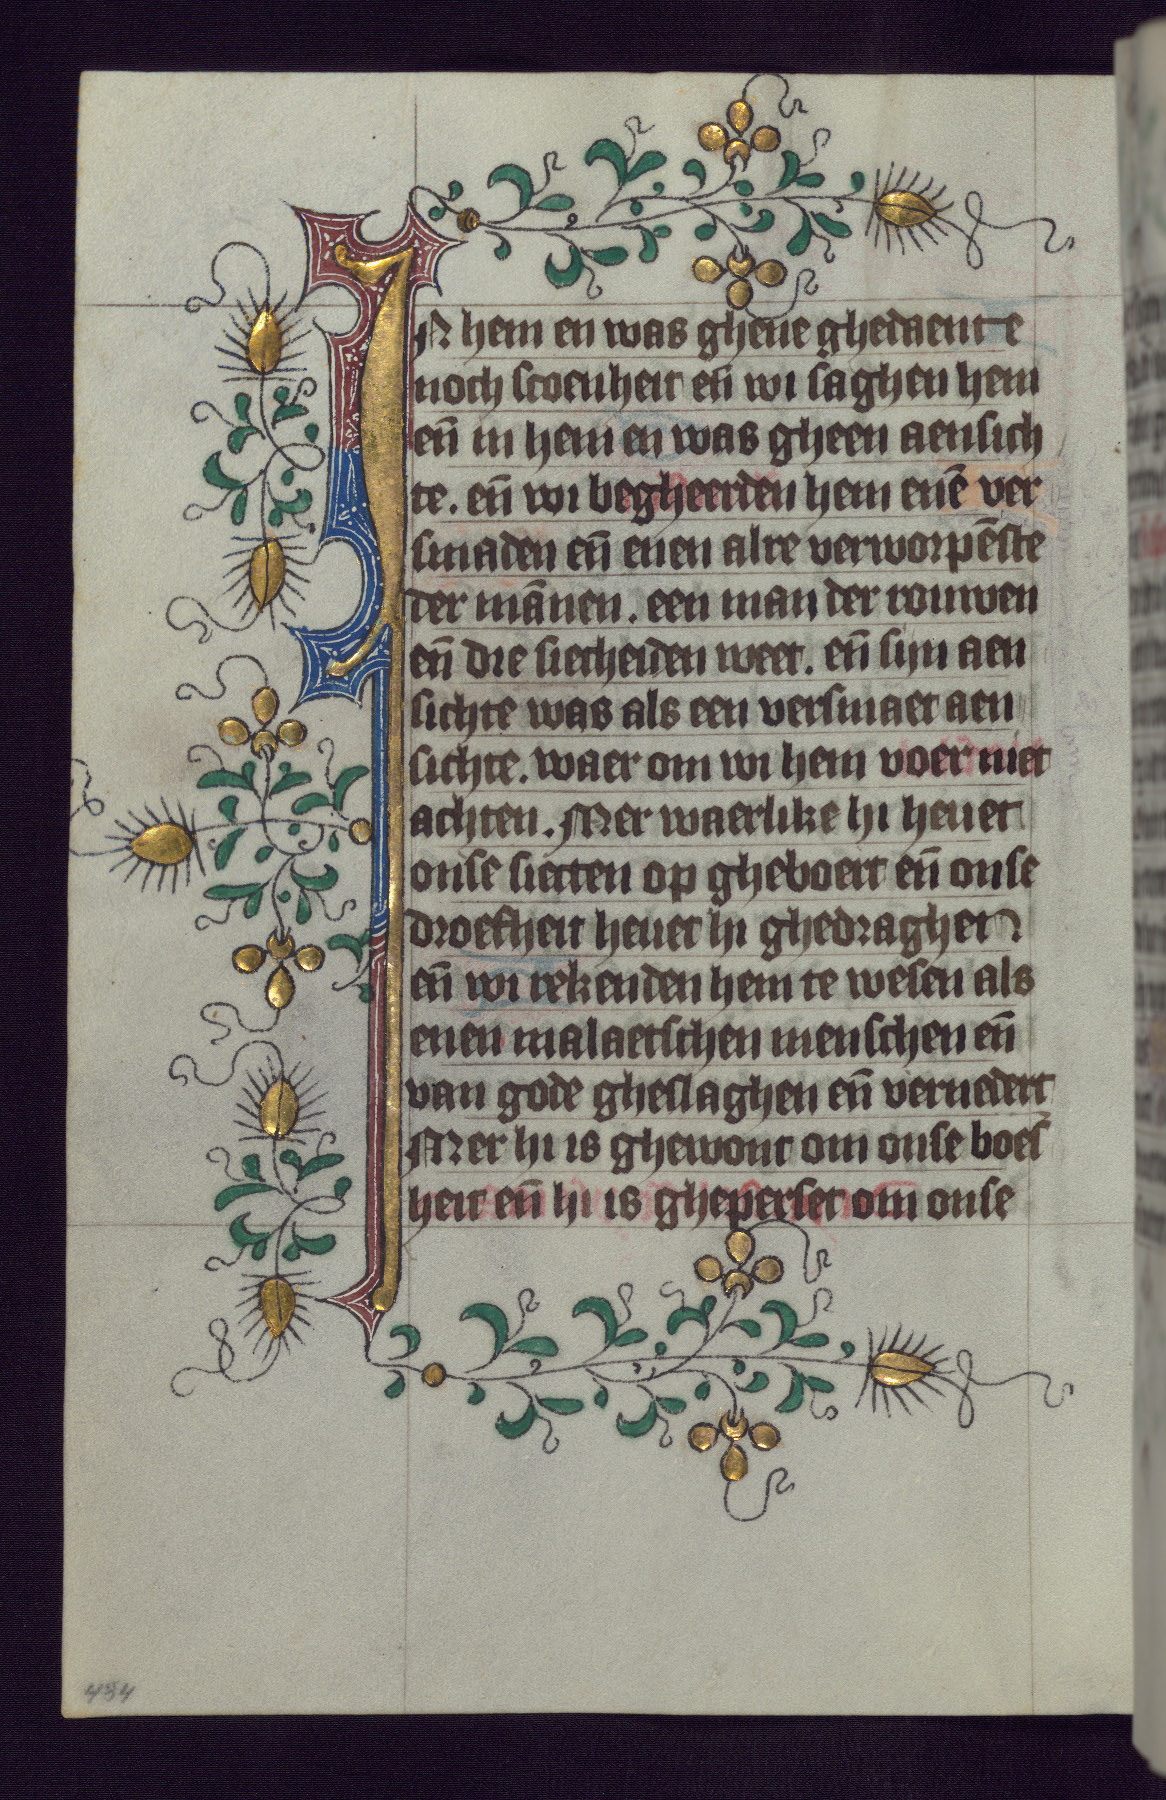 IN hem en was ghene ghedaente
noch scoenheit en̄ wi saghen hem
en̄ in hem en was gheen aensich
te. en̄ wi begheerden hem enē ver
smaden en̄ enen alre verworpēste
der mānen. een man der rouwen
en̄ die siecheiden weet. en̄ sijn aen
sichte was als een versmaet aen
sichte. waer om wi hem voer niet
achten. Mer waerlike hi heuet
onse siecten op gheboert en̄ onse
droefheit heuet hi ghedraghen
en̄ wi rekenden hem te wesen als
enen malaetschen menschen en̄
van gode gheslaghen en̄ vernedert
Mer hi is ghewont om onse boes
heit en̄ hi is gheperset om onse
434